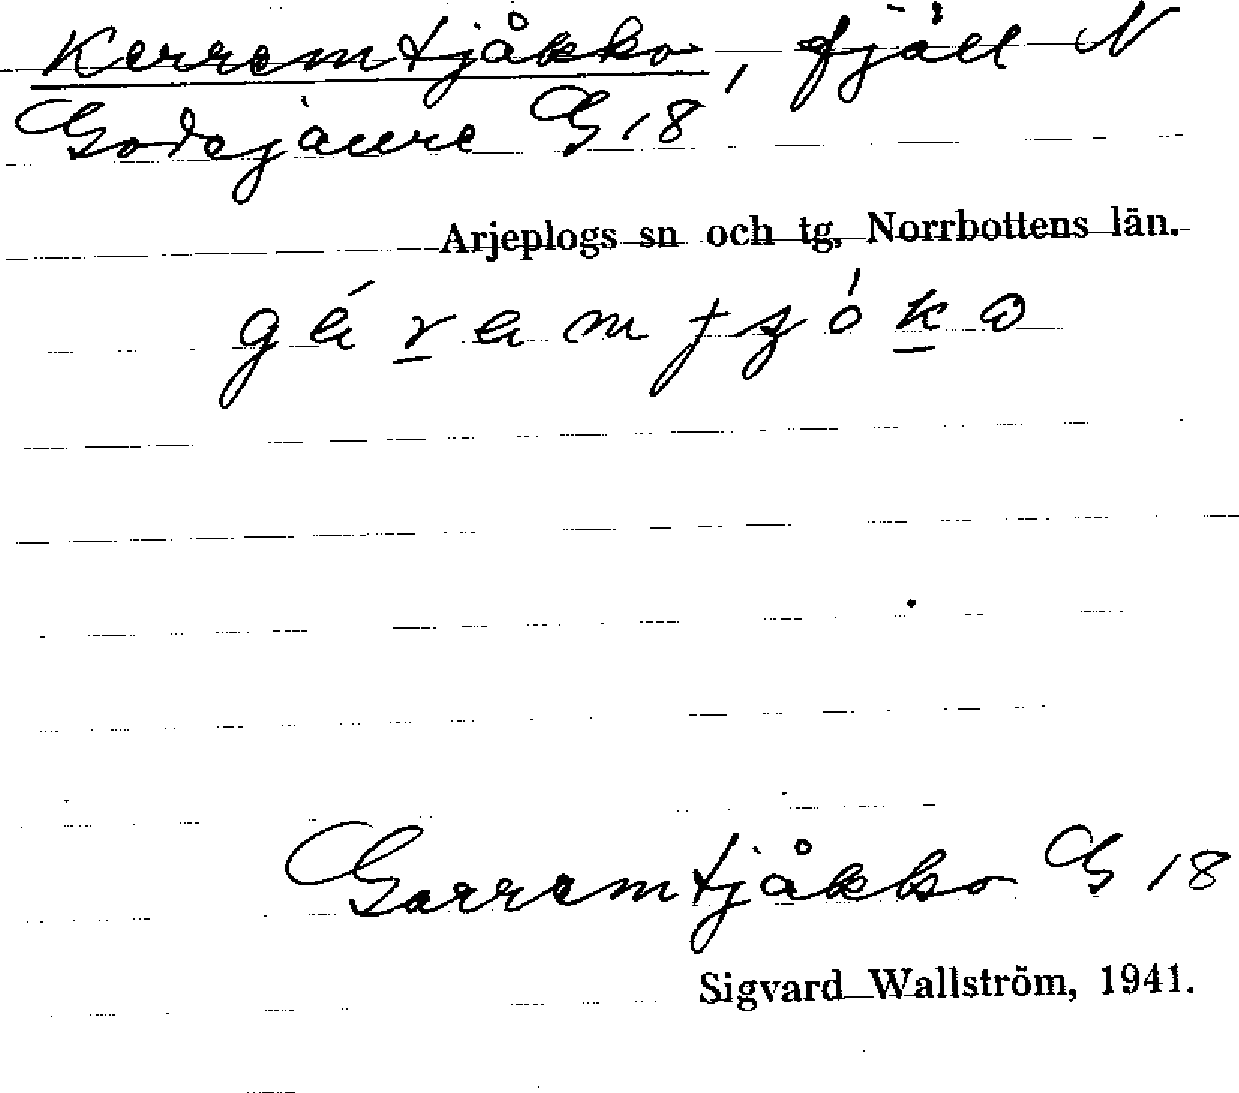 Kerremtjåkko, fjäll N
Godejaure G 18
Arjeplogs sn och tg, Norrbottens län.
Garremtjåkko G 18
Sigvard Wallström, 1941.